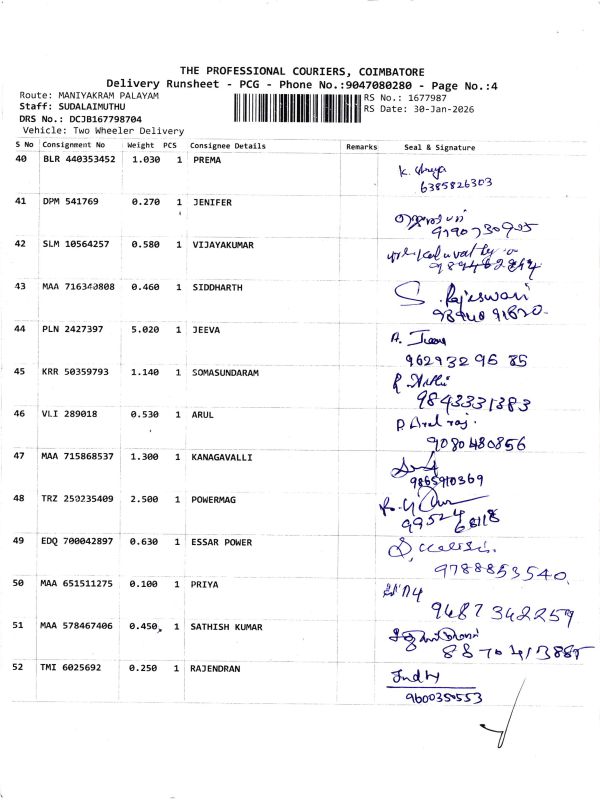 THE PROFESSIONAL COURIERS, COIMBATORE
Delivery Runsheet - PCG - Phone No.:9047080280 - Page No.:4
Route: MANIYAKRAM PALAYAM
RS No.: 1677987
Staff: SUDALAIMUTHU
RS Date: 30-Jan-2026
DRS No.: DCJB167798704
Vehicle: Two Wheeler Delivery
S No Consignment No Weight PCS Consignee Details Remarks Seal & Signature
40 BLR 440353452 1.030 1 PREMA
6385826303
41 DPM 541769 0.270 1 JENIFER
42 SLM 10564257 0.580 1 VIJAYAKUMAR
43 MAA 716340808 0.460 1 SIDDHARTH S. Rajeswari
44 PLN 2427397 5.020 1 JEEVA
9629329685
45 KRR 50359793 1.140 1 SOMASUNDARAM
9843331383
46 VLI 289018 0.530 1 ARUL
9080480856
47 MAA 715868537 1.300 1 KANAGAVALLI
9865910369
48 TRZ 250235409 2.500 1 POWERMAG
99524 68118
49 EDQ 700042897 0.630 1 ESSAR POWER
9788853540
50 MAA 651511275 0.100 1 PRIYA
9487342259
51 MAA 578467406 0.450 1 SATHISH KUMAR
52 TMI 6025692 0.250 1 RAJENDRAN
9600350553